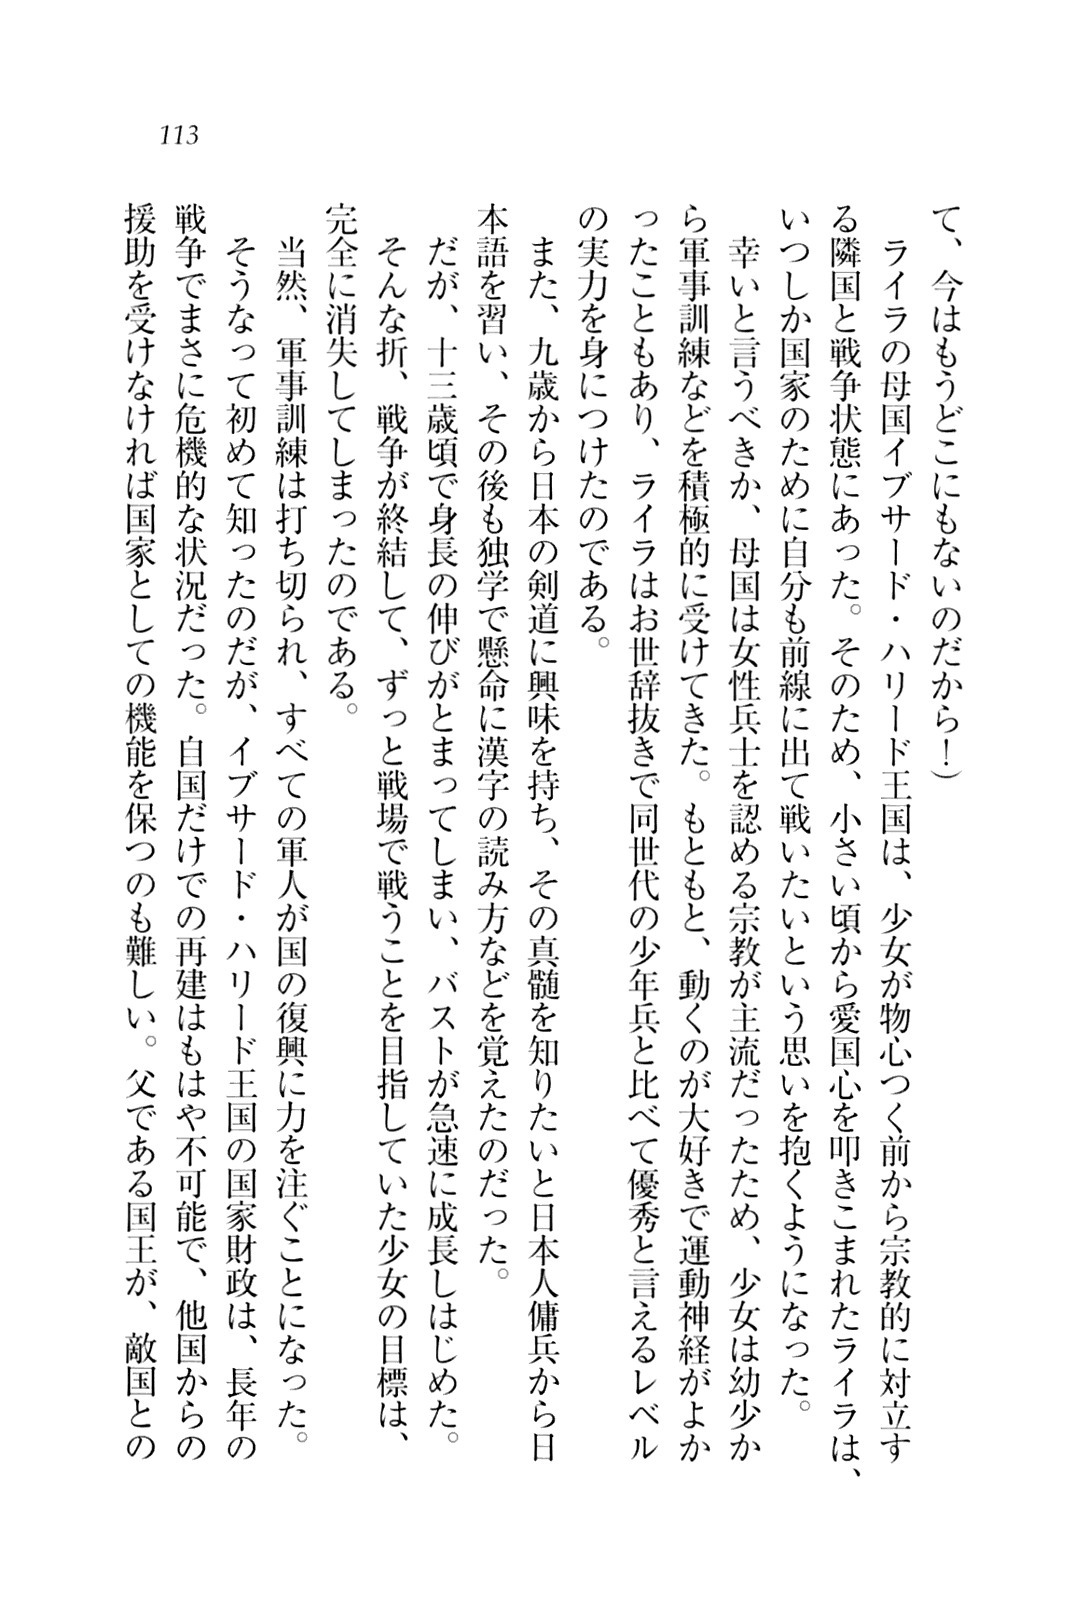 113
て、今はもうどこにもないのだから！）
　ライラの母国イブサード・ハリード王国は、少女が物心つく前から宗教的に対立す
る隣国と戦争状態にあった。そのため、小さい頃から愛国心を叩きこまれたライラは、
いつしか国家のために自分も前線に出て戦いたいという思いを抱くようになった。
　幸いと言うべきか、母国は女性兵士を認める宗教が主流だったため、少女は幼少か
ら軍事訓練などを積極的に受けてきた。もともと、動くのが大好きで運動神経がよか
ったこともあり、ライラはお世辞抜きで同世代の少年兵と比べて優秀と言えるレベル
の実力を身につけたのである。
　また、九歳から日本の剣道に興味を持ち、その真髄を知りたいと日本人傭兵から日
本語を習い、その後も独学で懸命に漢字の読み方などを覚えたのだった。
　だが、十三歳頃で身長の伸びがとまってしまい、バストが急速に成長しはじめた。
　そんな折、戦争が終結して、ずっと戦場で戦うことを目指していた少女の目標は、
完全に消失してしまったのである。
　当然、軍事訓練は打ち切られ、すべての軍人が国の復興に力を注ぐことになった。
　そうなって初めて知ったのだが、イブサード・ハリード王国の国家財政は、長年の
戦争でまさに危機的な状況だった。自国だけでの再建はもはや不可能で、他国からの
援助を受けなければ国家としての機能を保つのも難しい。父である国王が、敵国との